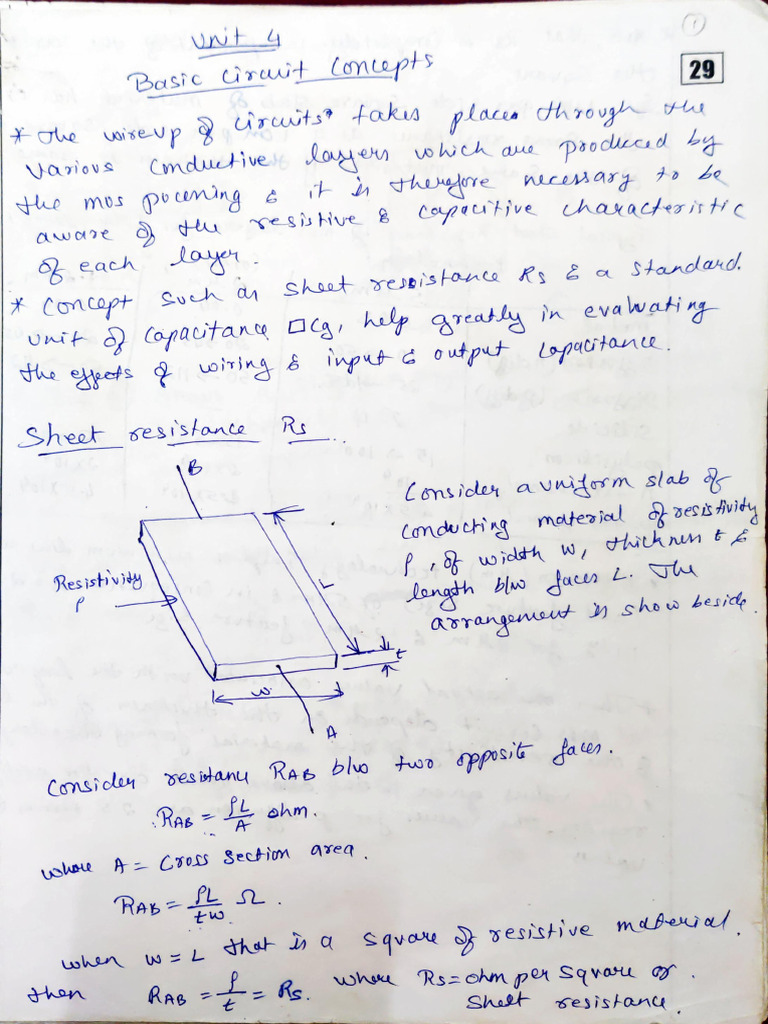 1
Unit 4
29
Basic Circuit Concepts
* The wireup of circuits takes places through the
various conductive layers which are produced by
the mos pocening & it is therefore necessary to be
aware of the resistive & capacitive characteristic
of each layer.
* Concept such as sheet resistance Rs & a standard.
unit of capacitance □Cg, help greatly in evalvating
the effects of wiring & input & output capacitance.
Sheet resistance Rs
B
Resistivity
ρ
L
t
w
A
Consider a uniform slab of
conducting material of resistivity
ρ, of width w, thickness t &
length b/w faces L. The
arrangement is show beside.
Consider resistance RAB b/w two opposite faces.
∴ RAB = ρL/A ohm.
where A = Cross section area.
RAB = ρL/tw Ω.
when w = L that is a square of resistive material.
then RAB = ρ/t = Rs. where Rs = ohm per square or
sheet resistance.